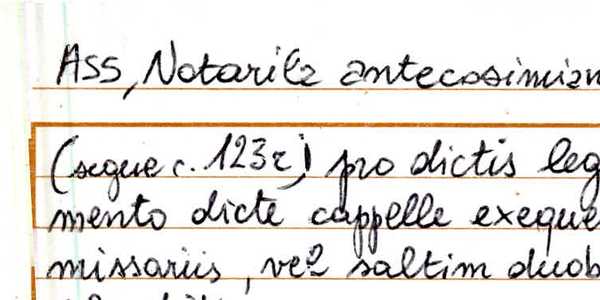 ASS, Notarile antecosimian
(segue c. 123r) pro dictis leg
mento dicte cappelle exeque
missariis, vel saltim duob